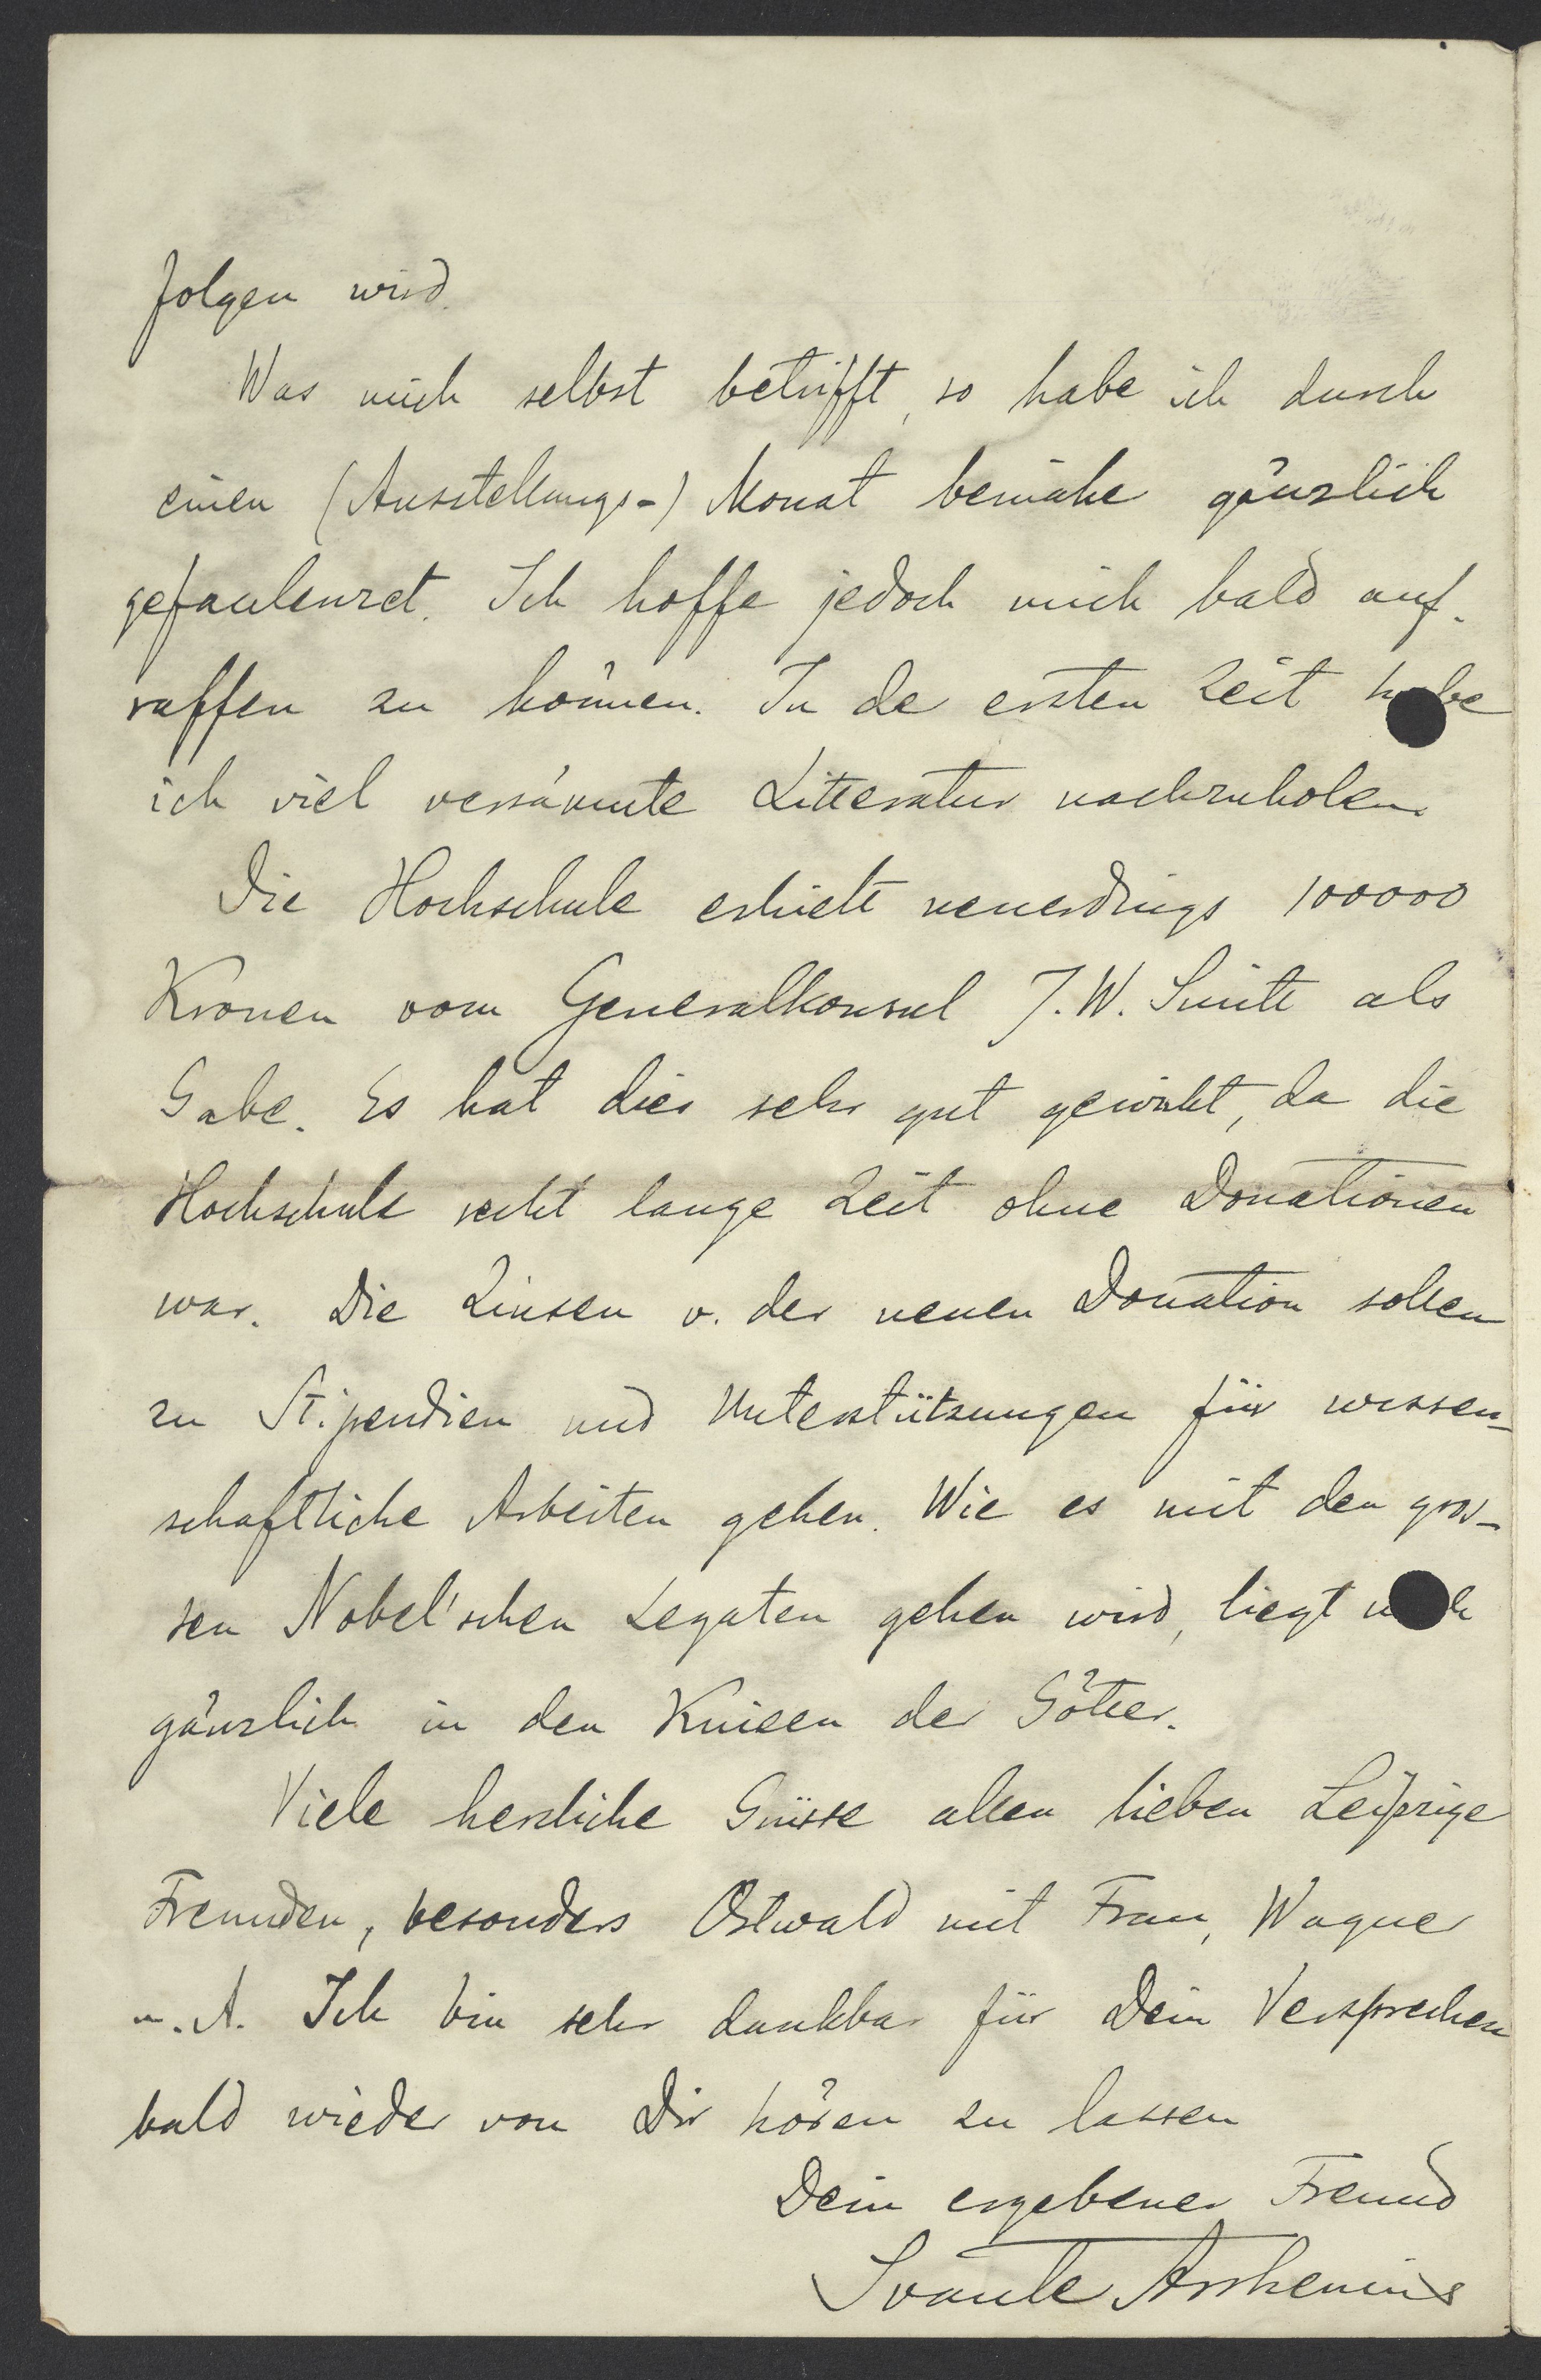 folgen wird.
Was mich selbst betrifft, so habe ich durch
einen (Ausstellungs-) Monat beinahe gänzlich
gefaulenzt. Ich hoffe jedoch mich bald auf-
raffen zu können. In de ersten Zeit habe
ich viel versäumte Litteratur nachzuholen.
Die Hochschule erhielt neuerdings 100000
Kronen vom Generalkonsul J. W. Smitt als
Gabe. Es hat dies sehr gut gewirkt, da die
Hochschule recht lange Zeit ohne Donationen
war. Die Zinsen v. der neuen Donation sollen
zu Stipendien und Unterstützungen für wissen-
schaftliche Arbeiten gehen. Wie es mit den gros-
sen Nobel'schen Legaten gehen wird, liegt noch
gänzlich in den Knieen der Götter.
Viele herzliche Grüsse allen lieben Leipziger
Freunden, besonders Ostwald mit Frau, Wagner
u. A. Ich bin sehr dankbar für Dein Versprechen
bald wieder von Dir hören zu lassen
Dein ergebener Freund
Svante Arrhenius